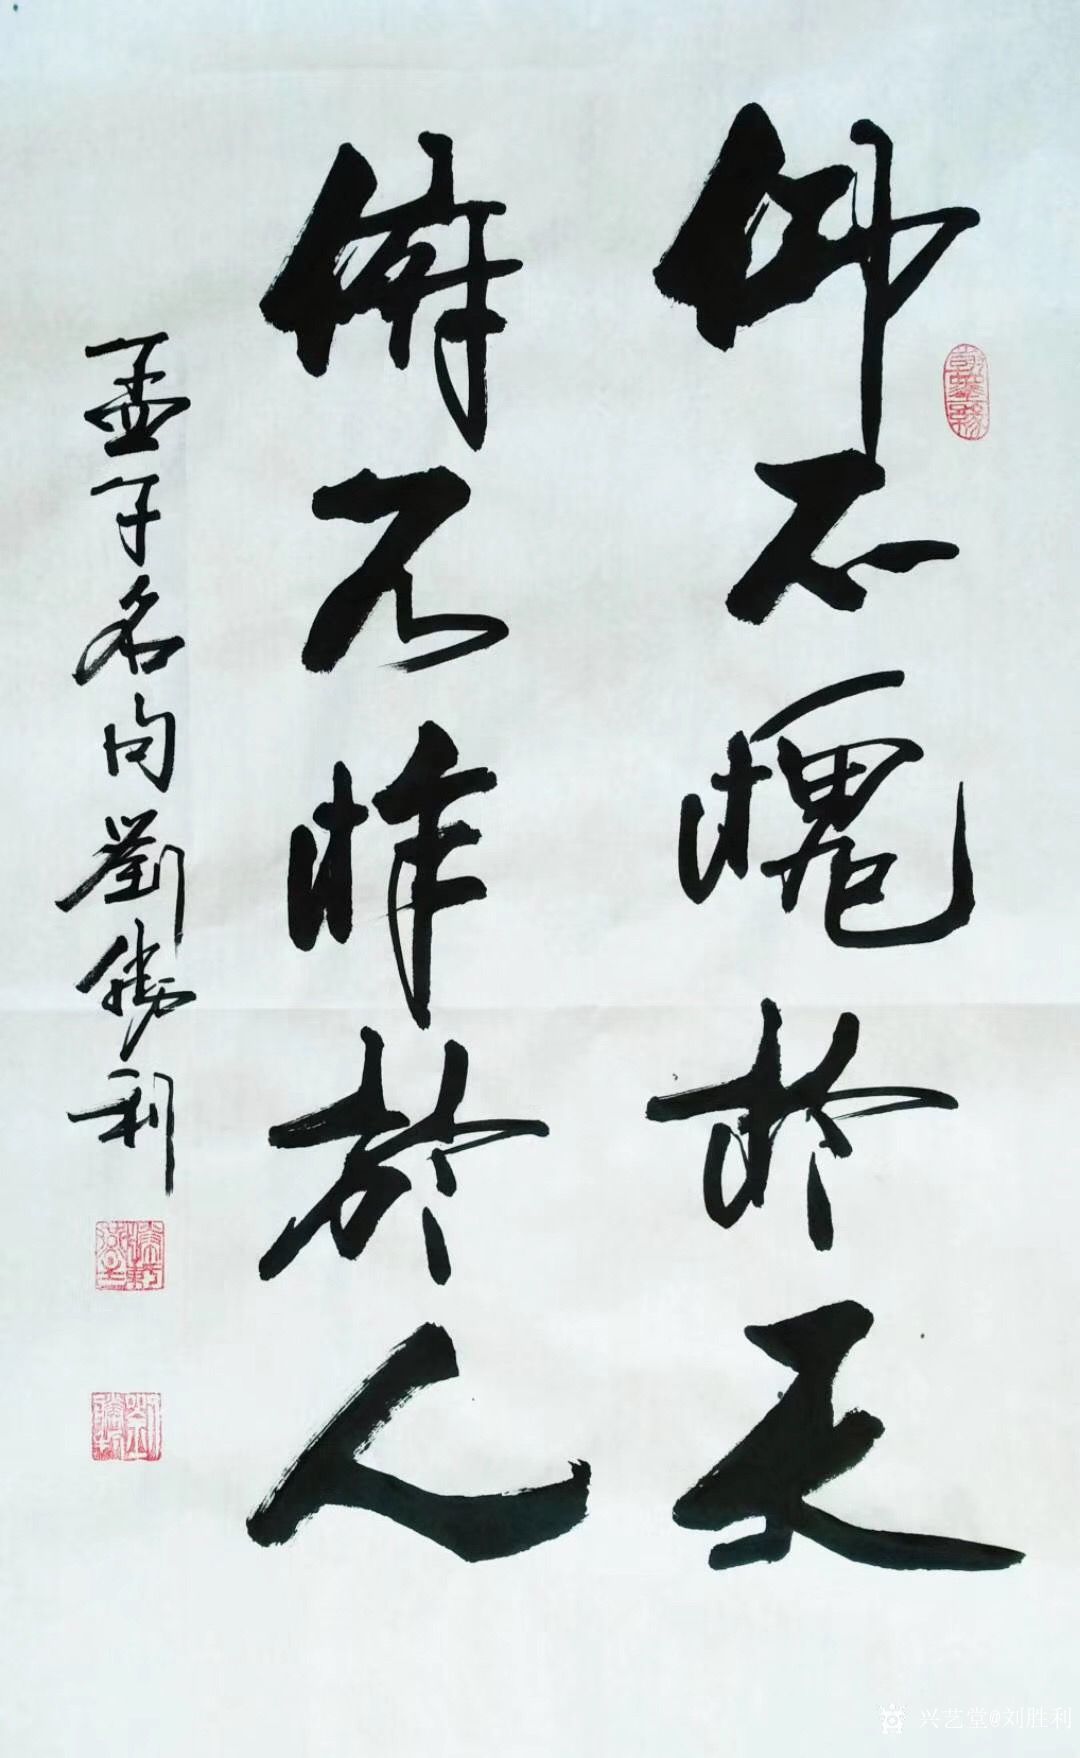 仰不愧於天
俯不怍於人
孟子名句劉勝利
兴艺堂@刘胜利